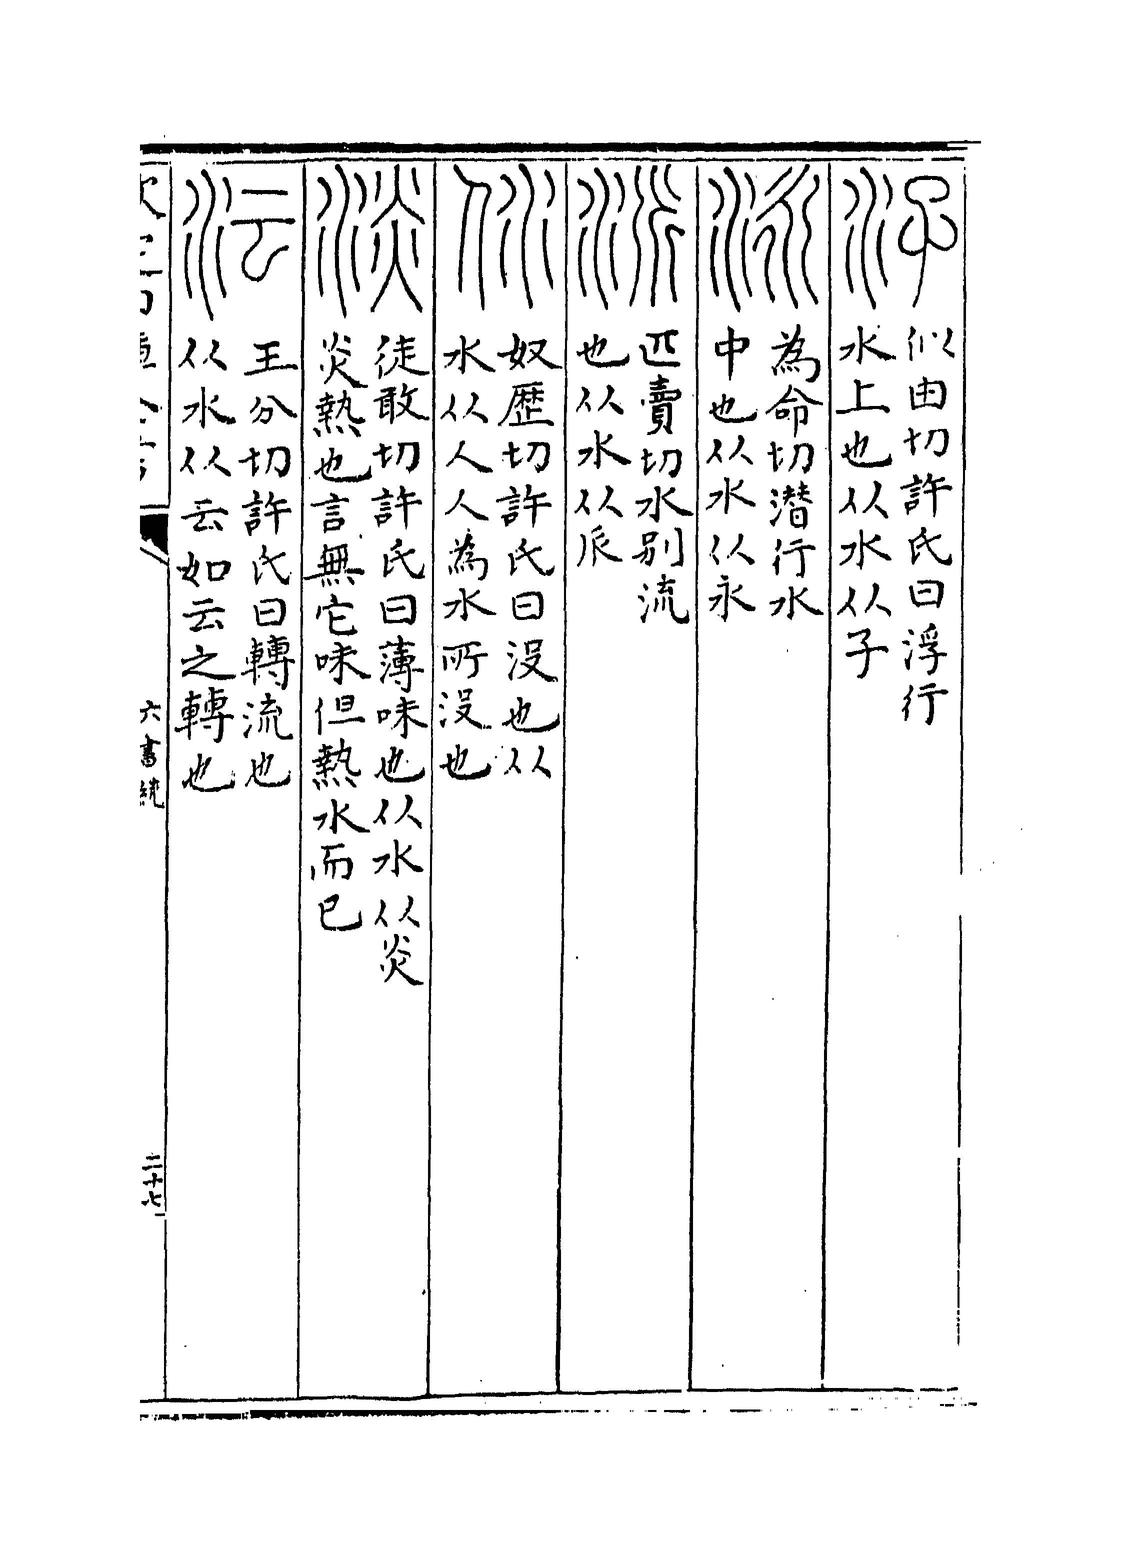 汓
似由切許氏曰浮行
水上也从水从子
泳
為命切潜行水
中也从水从永
𣲖
匹賣切水别流
也从水从𠂢
㲻
奴歴切許氏曰没也从
水从人人為水所没也
淡
徒敢切許氏曰薄味也从水从炎
炎熱也言無它味但熱水而已
沄
王分切許氏曰轉流也
从水从云如云之轉也
六書統
二十七